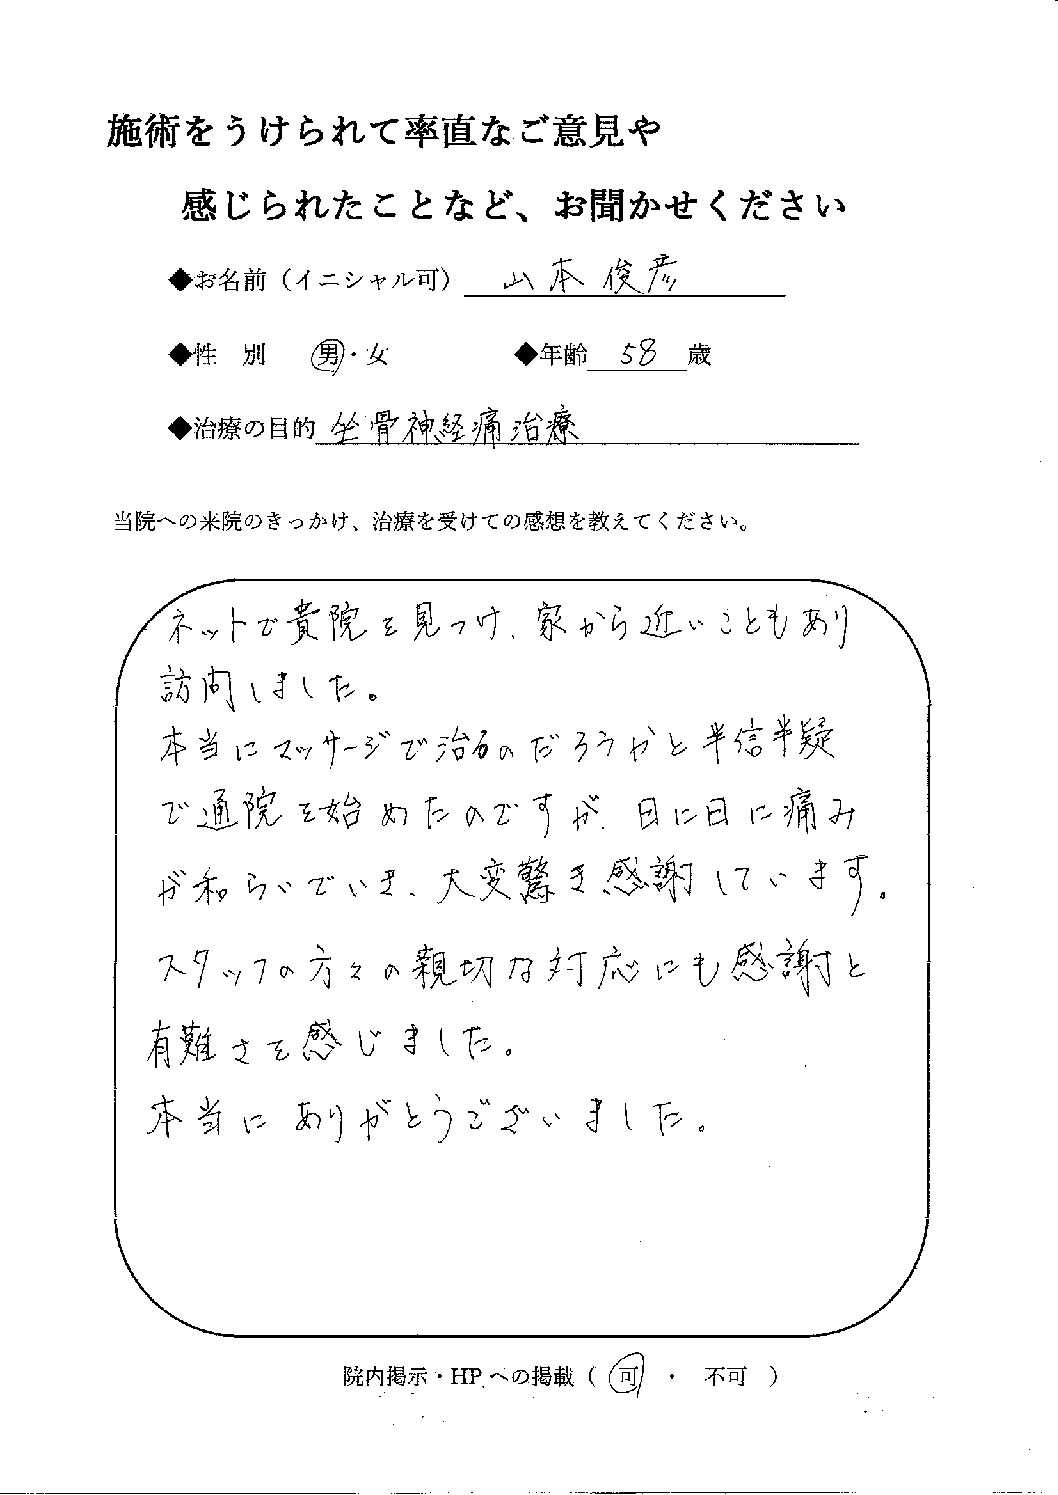 施術をうけられて率直なご意見や
感じられたことなど、お聞かせください
◆お名前（イニシャル可） 山本俊彦
◆性 別 男・女 ◆年齢 58 歳
◆治療の目的 坐骨神経痛治療
当院への来院のきっかけ、治療を受けての感想を教えてください。
ネットで貴院を見つけ、家から近いこともあり
訪問しました。
本当にマッサージで治るのだろうかと半信半疑
で通院を始めたのですが、日に日に痛み
が和らいでいき、大変驚き感謝しています。
スタッフの方々の親切な対応にも感謝と
有難さを感じました。
本当にありがとうございました。
院内掲示・HPへの掲載（ 可 ・ 不可 ）